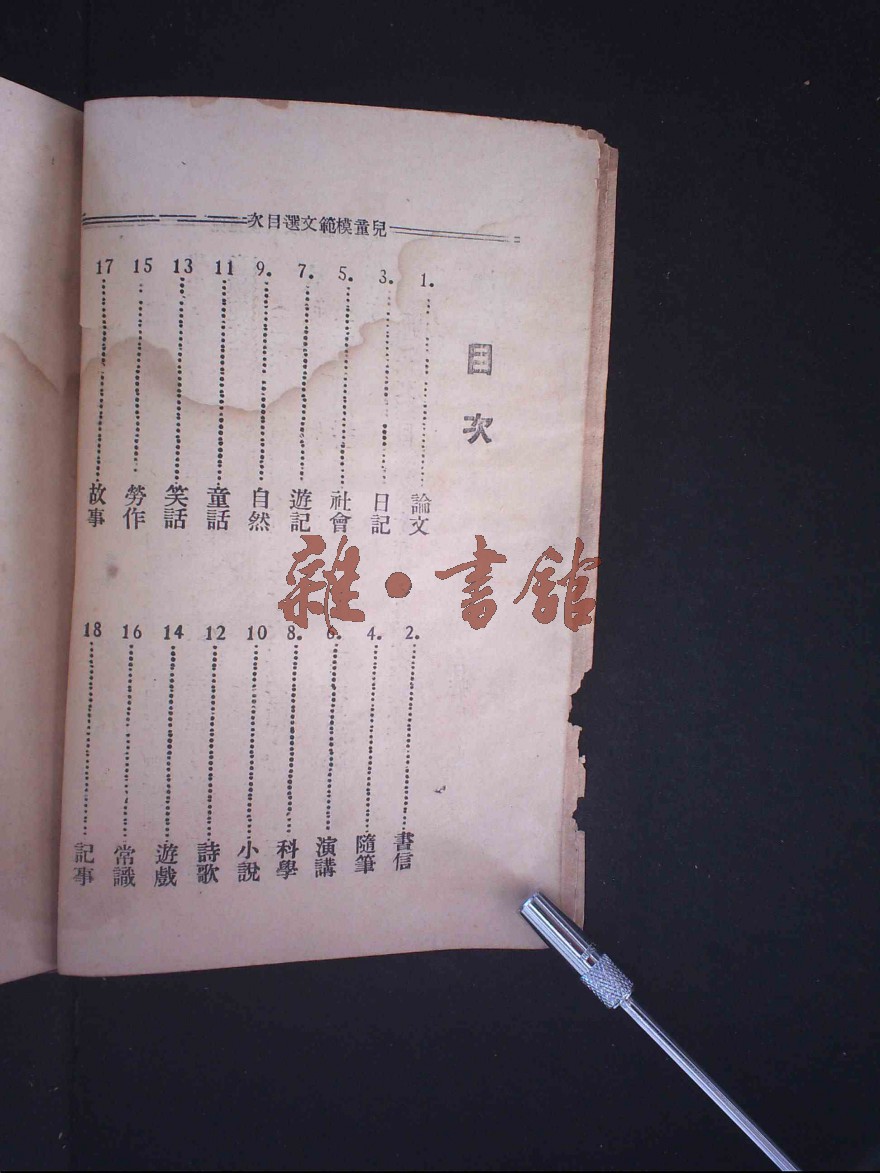 兒童模範文選目次
目次
1. ………… 論文
2. ………… 書信
3. ………… 日記
4. ………… 隨筆
5. ………… 社會
6. ………… 演講
7. ………… 遊記
8. ………… 科學
9. ………… 自然
10 ………… 小說
11 ………… 童話
12 ………… 詩歌
13 ………… 笑話
14 ………… 遊戲
15 ………… 勞作
16 ………… 常識
17 ………… 故事
18 ………… 記事
雜·書館